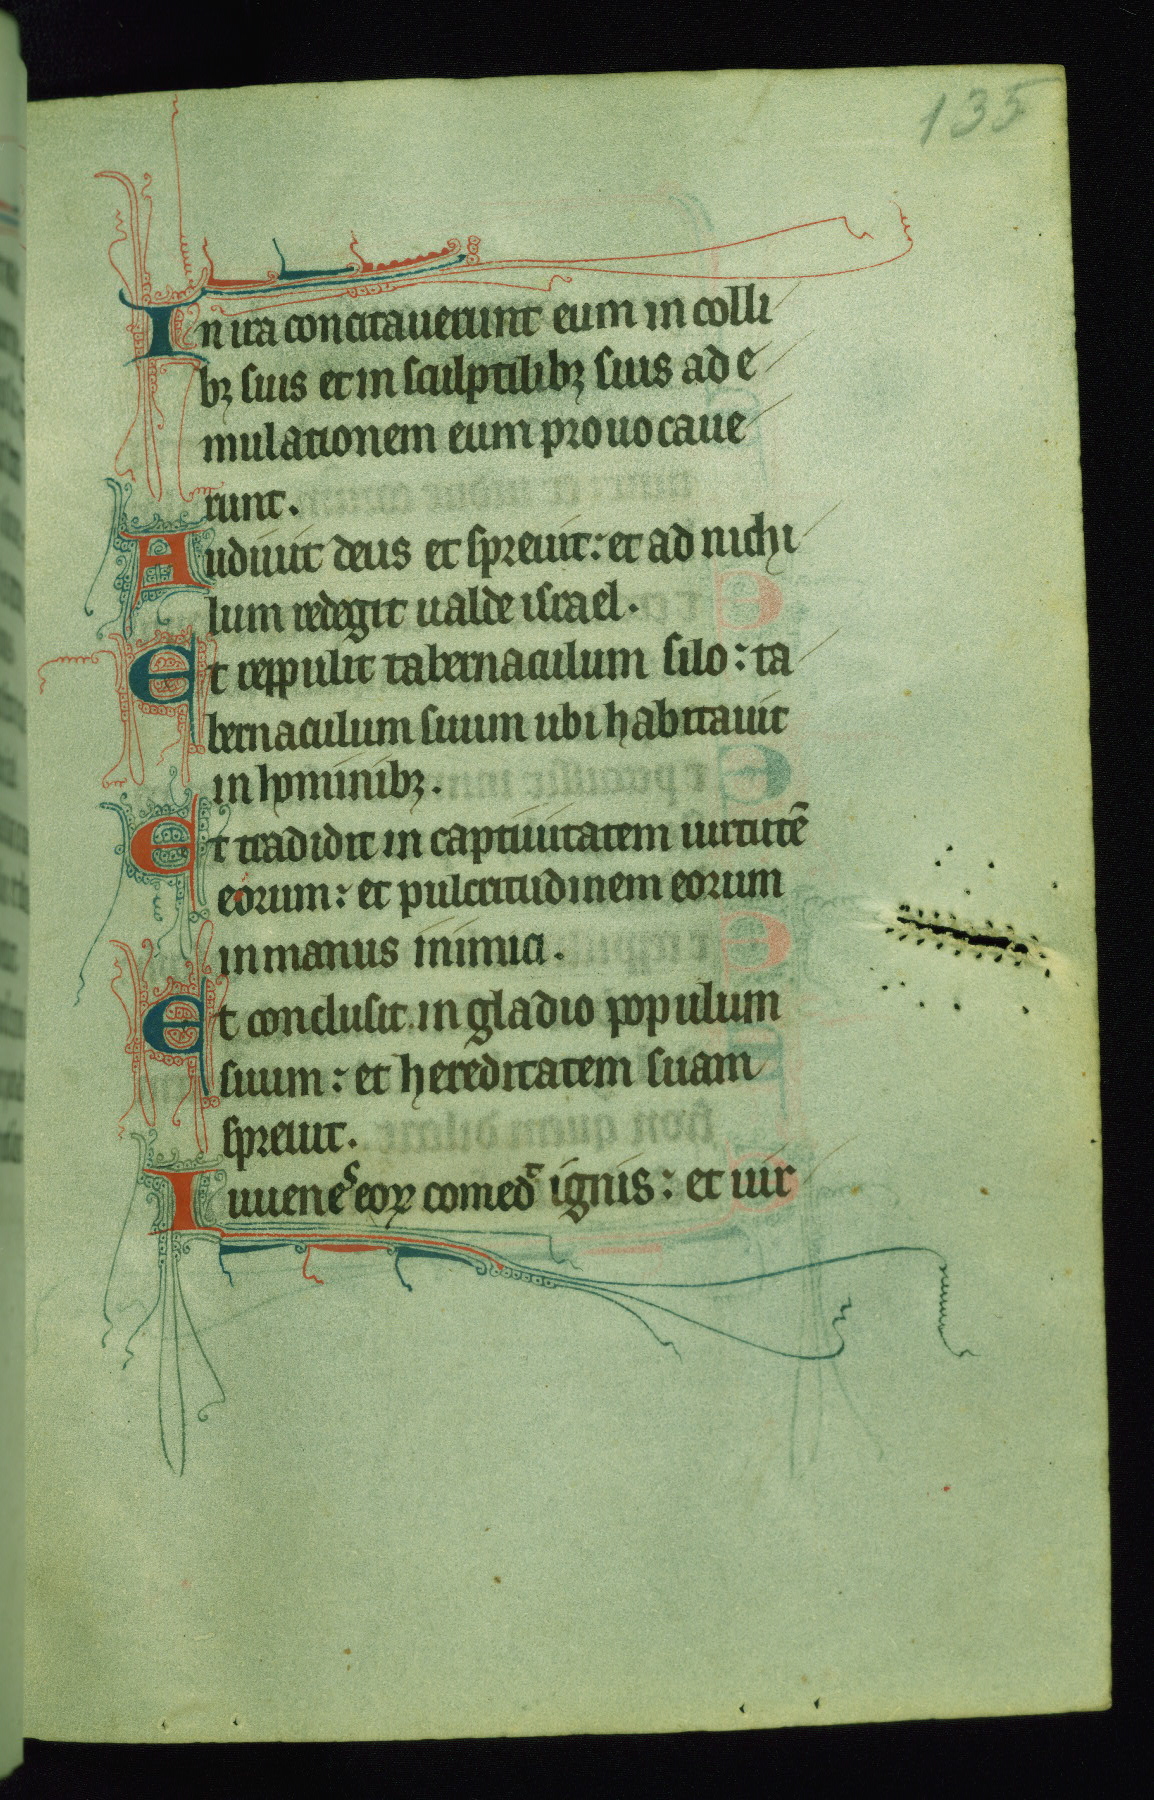 135
In ira concitauerunt eum in colli
bꝫ suis et in sculptilibꝫ suis ad e
mulationem eum prouocaue
runt.
Audiuit deus et spreuit: et ad nichi
lum redegit ualde israel.
Et reppulit tabernaculum silo: ta
bernaculum suum ubi habitauit
in hominibꝫ.
Et tradidit in captiuitatem uirtutē
eorum: et pulcritudinem eorum
in manus inimici.
Et conclusit in gladio populum
suum: et hereditatem suam
spreuit.
Iuuenes eoꝝ comedt ignis: et uir